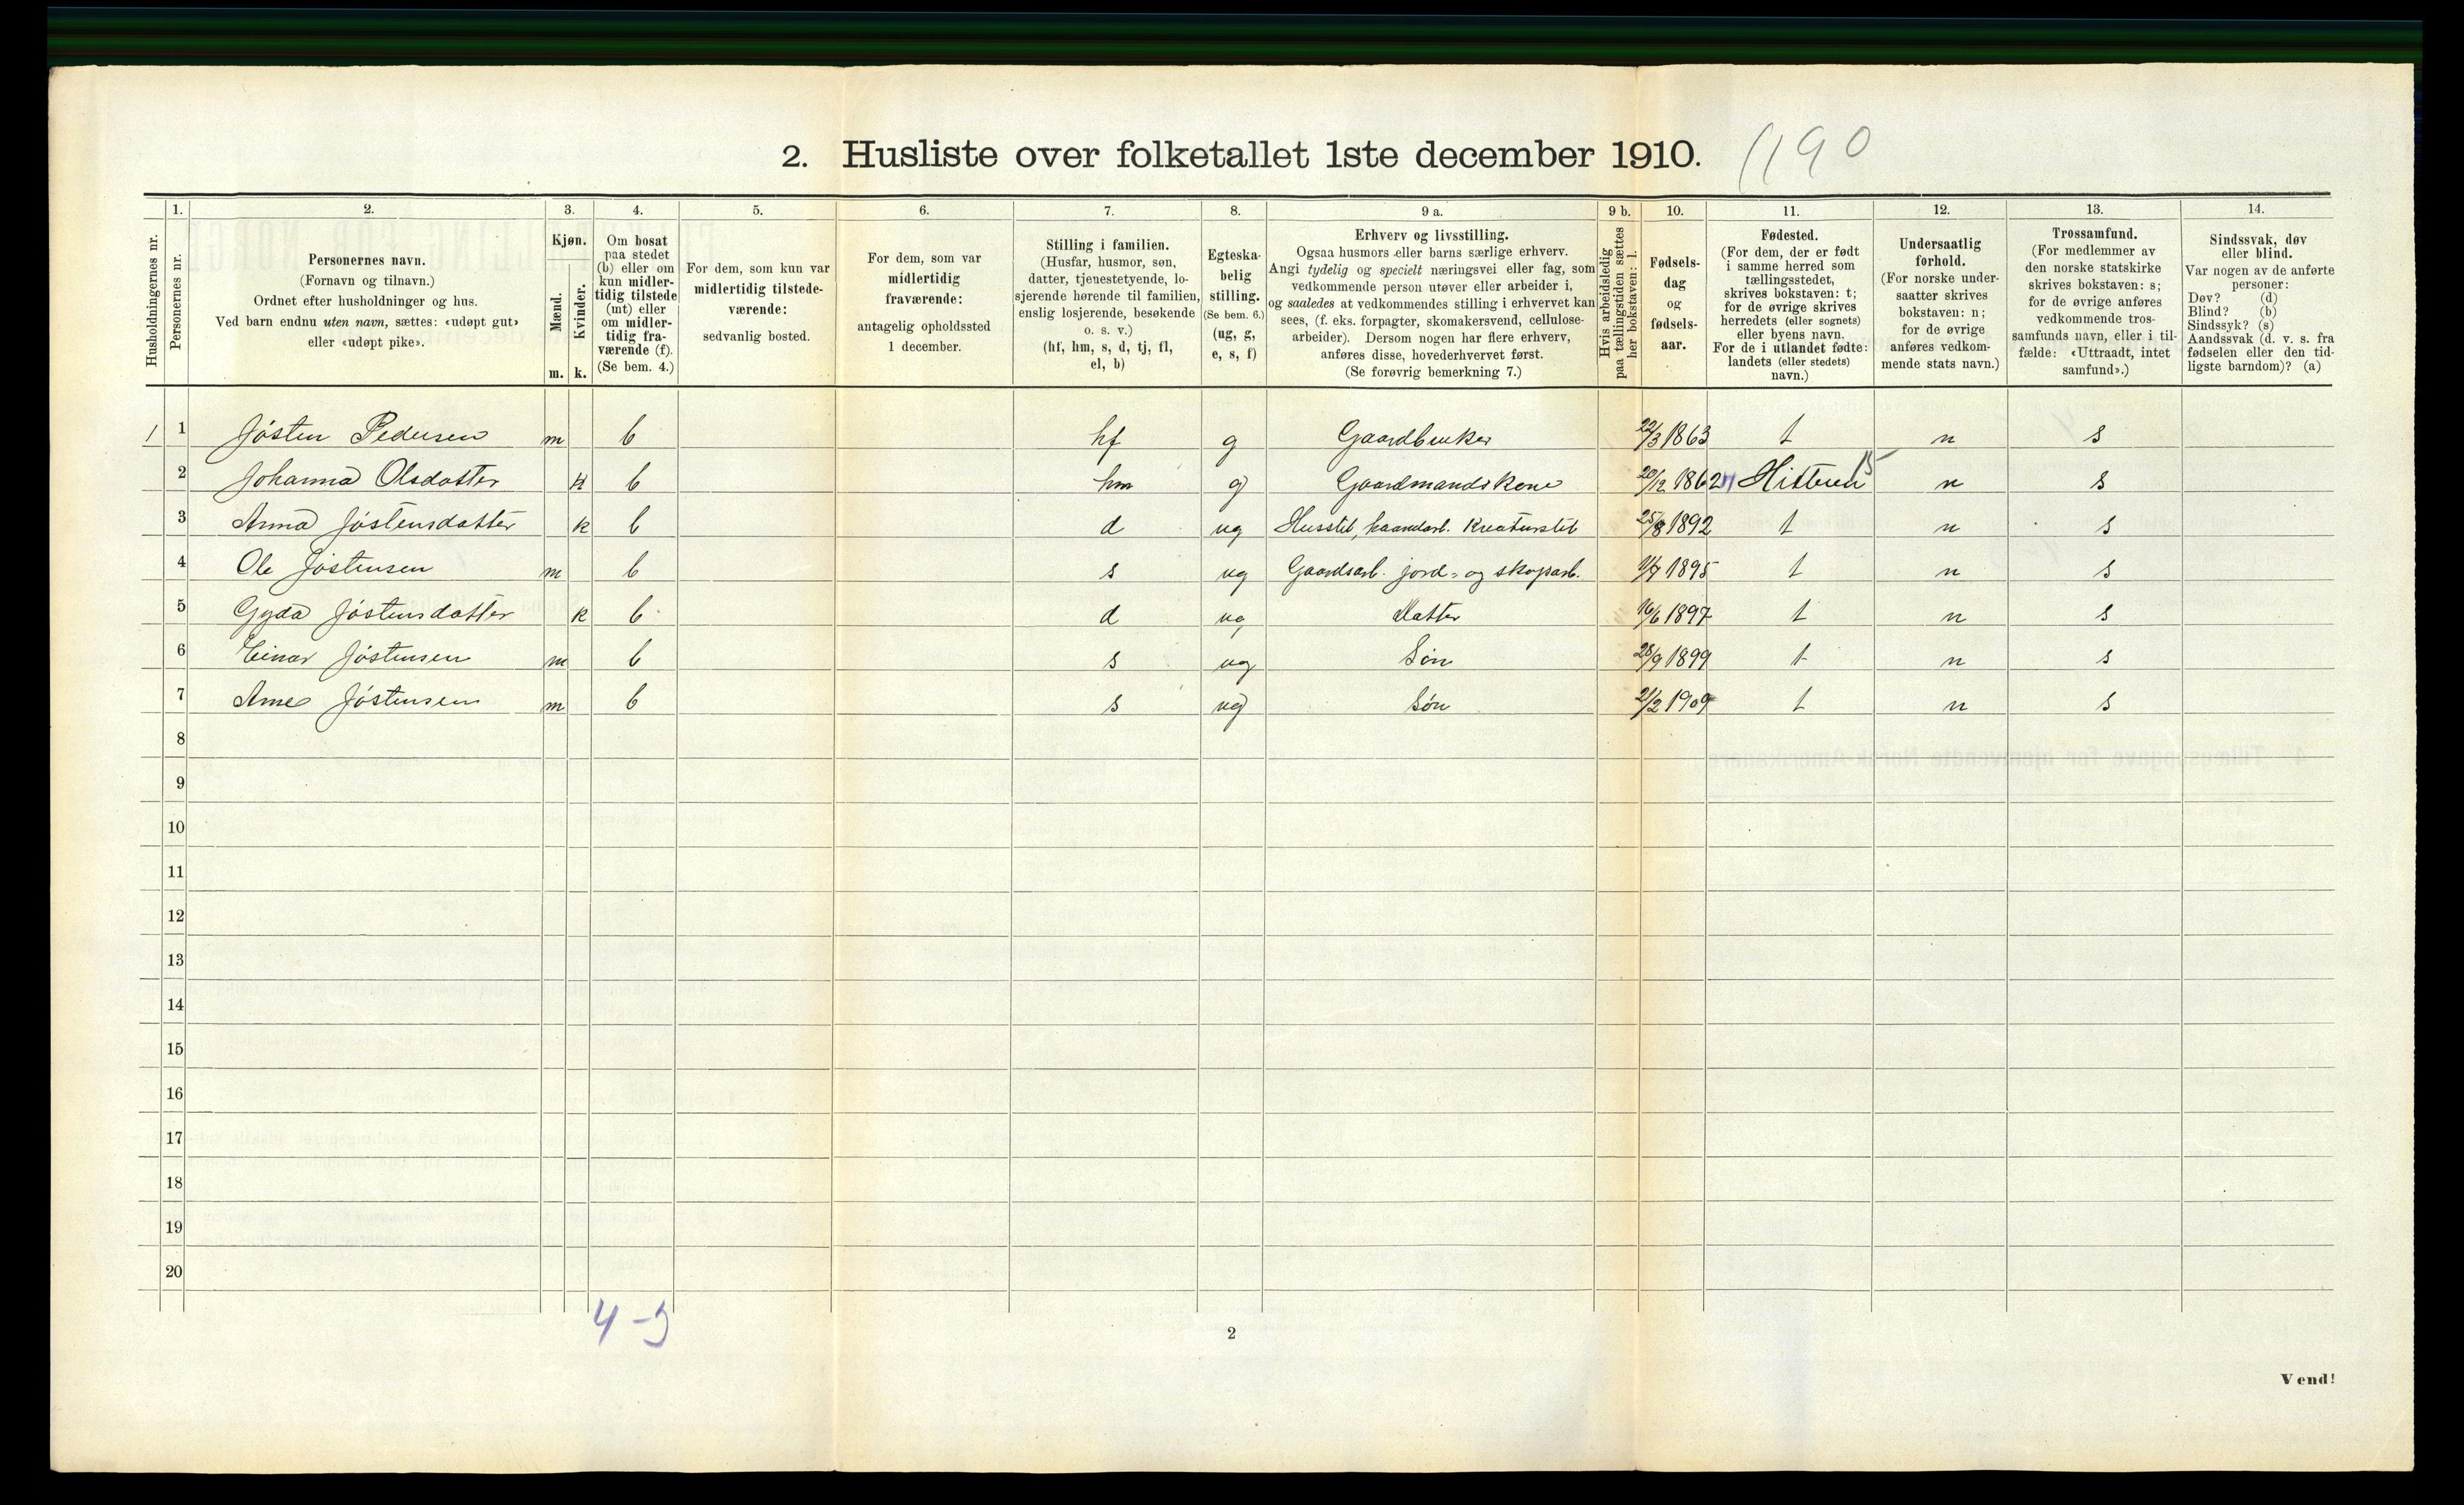 2. Husliste over folketallet 1ste december 1910. 1190
1. 2. 3. 4. 5. 6. 7. 8. 9 a. 9 b. 10. 11. 12. 13. 14.
Husholdningernes nr.
Personernes nr.
Personernes navn.
(Fornavn og tilnavn.)
Ordnet efter husholdninger og hus.
Ved barn endnu uten navn, sættes: «udøpt gut»
eller «udøpt pike».
Kjøn.
Mænd.
Kvinder.
m. k.
Om bosat
paa stedet
(b) eller om
kun midler-
tidig tilstede
(mt) eller
om midler-
tidig fra-
værende (f).
(Se bem. 4.)
For dem, som kun var
midlertidig tilstede-
værende:
sedvanlig bosted.
For dem, som var
midlertidig
fraværende:
antagelig opholdssted
1 december.
Stilling i familien.
(Husfar, husmor, søn,
datter, tjenestetyende, lo-
sjerende hørende til familien,
enslig losjerende, besøkende
o. s. v.)
(hf, hm, s, d, tj, fl,
el, b)
Egteska-
belig
stilling.
(Se bem. 6.)
(ug, g,
e, s, f)
Erhverv og livsstilling.
Ogsaa husmors eller barns særlige erhverv.
Angi tydelig og specielt næringsvei eller fag, som
vedkommende person utøver eller arbeider i,
og saaledes at vedkommendes stilling i erhvervet kan
sees, (f. eks. forpagter, skomakersvend, cellulose-
arbeider). Dersom nogen har flere erhverv,
anføres disse, hovederhvervet først.
(Se forøvrig bemerkning 7.)
Hvis arbeidsledig
paa tællingstiden sættes
her bokstaven: l.
Fødsels-
dag
og
fødsels-
aar.
Fødested.
(For dem, der er født
i samme herred som
tællingsstedet,
skrives bokstaven: t;
for de øvrige skrives
herredets (eller sognets)
eller byens navn.
For de i utlandet fødte:
landets (eller stedets)
navn.)
Undersaatlig
forhold.
(For norske under-
saatter skrives
bokstaven: n;
for de øvrige
anføres vedkom-
mende stats navn.)
Trossamfund.
(For medlemmer av
den norske statskirke
skrives bokstaven: s;
for de øvrige anføres
vedkommende tros-
samfunds navn, eller i til-
fælde: «Uttraadt, intet
samfund».)
Sindssvak, døv
eller blind.
Var nogen av de anførte
personer:
Døv? (d)
Blind? (b)
Sindssyk? (s)
Aandssvak (d. v. s. fra
fødselen eller den tid-
ligste barndom)? (a)
1 1 Jøsten Pedersen m b hf g Gaardbruker 22/3 1863 t n s
2 Johanna Olsdatter k b hm g Gaardmandskone 20/12 1862 Hitteren 15 n s
3 Anna Jøstensdatter k b d ug Husstel, haandarb. Kreaturstel 25/8 1892 t n s
4 Ole Jøstensen m b s ug Gaardsarb. jord- og skogsarb. 1/7 1895 t n s
5 Gyda Jøstensdatter k b d ug Datter 16/6 1897 t n s
6 Einar Jøstensen m b s ug Søn 28/9 1899 t n s
7 Arne Jøstensen m b s ug Søn 21/2 1909 t n s
8
9
10
11
12
13
14
15
16
17
18
19
20
4-3
2
Vend!